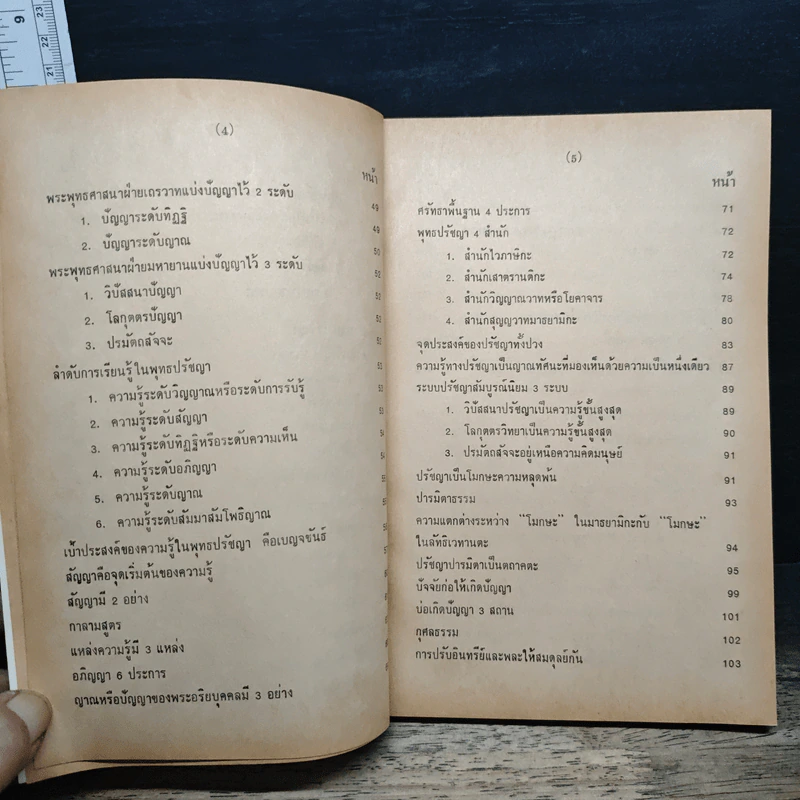 9
23
22
21
(4)
หน้า
พระพุทธศาสนาฝ่ายเถรวาทแบ่งปัญญาไว้ 2 ระดับ 49
1. ปัญญาระดับทิฏฐิ 49
2. ปัญญาระดับญาณ 50
พระพุทธศาสนาฝ่ายมหายานแบ่งปัญญาไว้ 3 ระดับ 52
1. วิปัสสนาปัญญา 52
2. โลกุตตรปัญญา 52
3. ปรมัตถสัจจะ
ลำดับการเรียนรู้ในพุทธปรัชญา
1. ความรู้ระดับวิญญาณหรือระดับการรับรู้
2. ความรู้ระดับสัญญา
3. ความรู้ระดับทิฏฐิหรือระดับความเห็น
4. ความรู้ระดับอภิญญา
5. ความรู้ระดับญาณ
6. ความรู้ระดับสัมมาสัมโพธิญาณ
เป้าประสงค์ของความรู้ในพุทธปรัชญา คือเบญจขันธ์
สัญญาคือจุดเริ่มต้นของความรู้
สัญญามี 2 อย่าง
กาลามสูตร
แหล่งความรู้มี 3 แหล่ง
อภิญญา 6 ประการ
ญาณหรือปัญญาของพระอริยบุคคลมี 3 อย่าง
(5)
หน้า
ศรัทธาพื้นฐาน 4 ประการ 71
พุทธปรัชญา 4 สำนัก 72
1. สำนักไวภาษิกะ 72
2. สำนักเสาตรานติกะ 74
3. สำนักวิญญาณวาทหรือโยคาจาร 78
4. สำนักสุญญวาทมาธยามิกะ 80
จุดประสงค์ของปรัชญาทั้งปวง 83
ความรู้ทางปรัชญาเป็นญาณทัศนะที่มองเห็นด้วยความเป็นหนึ่งเดียว 87
ระบบปรัชญาสัมบูรณ์นิยม 3 ระบบ 89
1. วิปัสสนาปรัชญาเป็นความรู้ขั้นสูงสุด 89
2. โลกุตตรวิทยาเป็นความรู้ขั้นสูงสุด 90
3. ปรมัตถสัจจะอยู่เหนือความคิดมนุษย์ 91
ปรัชญาเป็นโมกษะความหลุดพ้น 91
ปารมิตาธรรม 93
ความแตกต่างระหว่าง "โมกษะ" ในมาธยามิกะกับ "โมกษะ"
ในลัทธิเวทานตะ 94
ปรัชญาปารมิตาเป็นตถาคตะ 95
ปัจจัยก่อให้เกิดปัญญา 99
บ่อเกิดปัญญา 3 สถาน 101
กุศลธรรม 102
การปรับอินทรีย์และพละให้สมดุลย์กัน 103